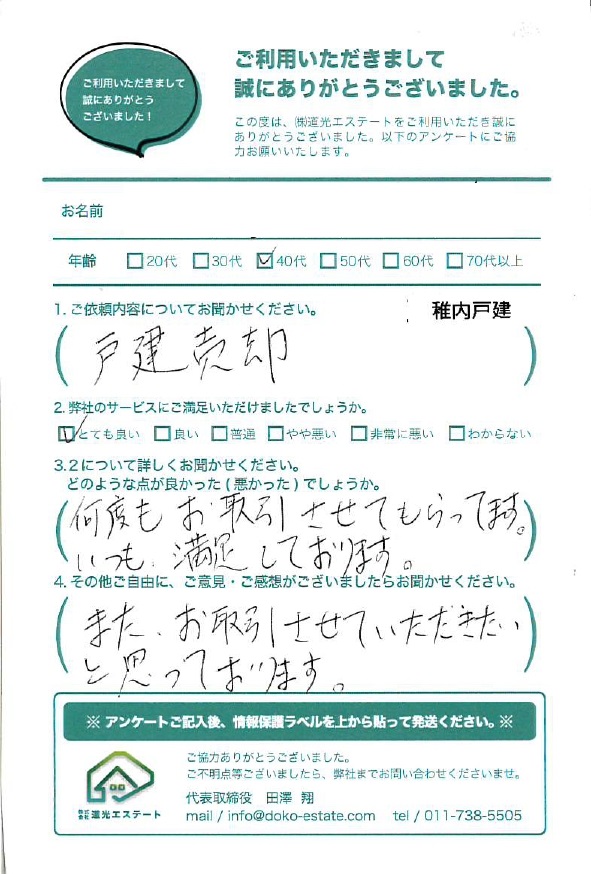 ご利用いただきまして
誠にありがとう
ございました！
ご利用いただきまして
誠にありがとうございました。
この度は、㈱道光エステートをご利用いただき誠に
ありがとうございました。以下のアンケートにご協
力お願いいたします。
お名前
年齢 □20代 □30代 ☑40代 □50代 □60代 □70代以上
1. ご依頼内容についてお聞かせください。 稚内戸建
戸建売却
2. 弊社のサービスにご満足いただけましたでしょうか。
☑とても良い □良い □普通 □やや悪い □非常に悪い □わからない
3.2について詳しくお聞かせください。
どのような点が良かった(悪かった)でしょうか。
何度もお取引させてもらってます。
いつも、満足しております。
4. その他ご自由に、ご意見・ご感想がございましたらお聞かせください。
また、お取引させていただきたい
と思っております。
※ アンケートご記入後、情報保護ラベルを上から貼って発送ください。※
ご協力ありがとうございました。
ご不明点等ございましたら、弊社までお問い合わせくださいませ。
代表取締役 田澤 翔
株式会社 道光エステート mail / info@doko-estate.com tel / 011-738-5505